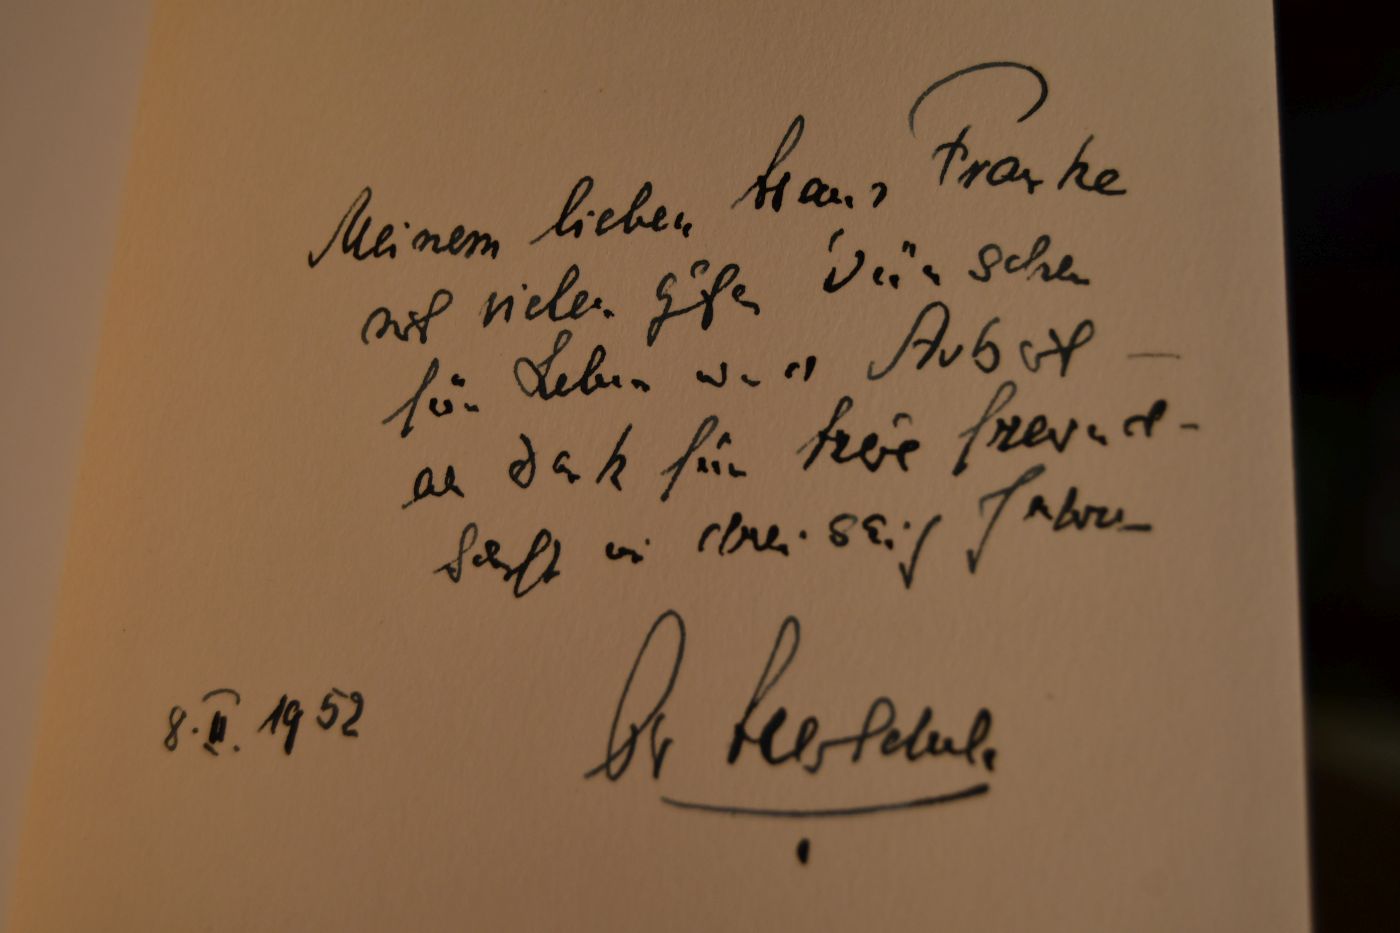 Meinem lieben Hans Franke
mit vielen guten Wünschen
für Leben und Arbeit —
als Dank für treue Freund-
schaft in dreissig Jahren
Dr
8. II. 1952